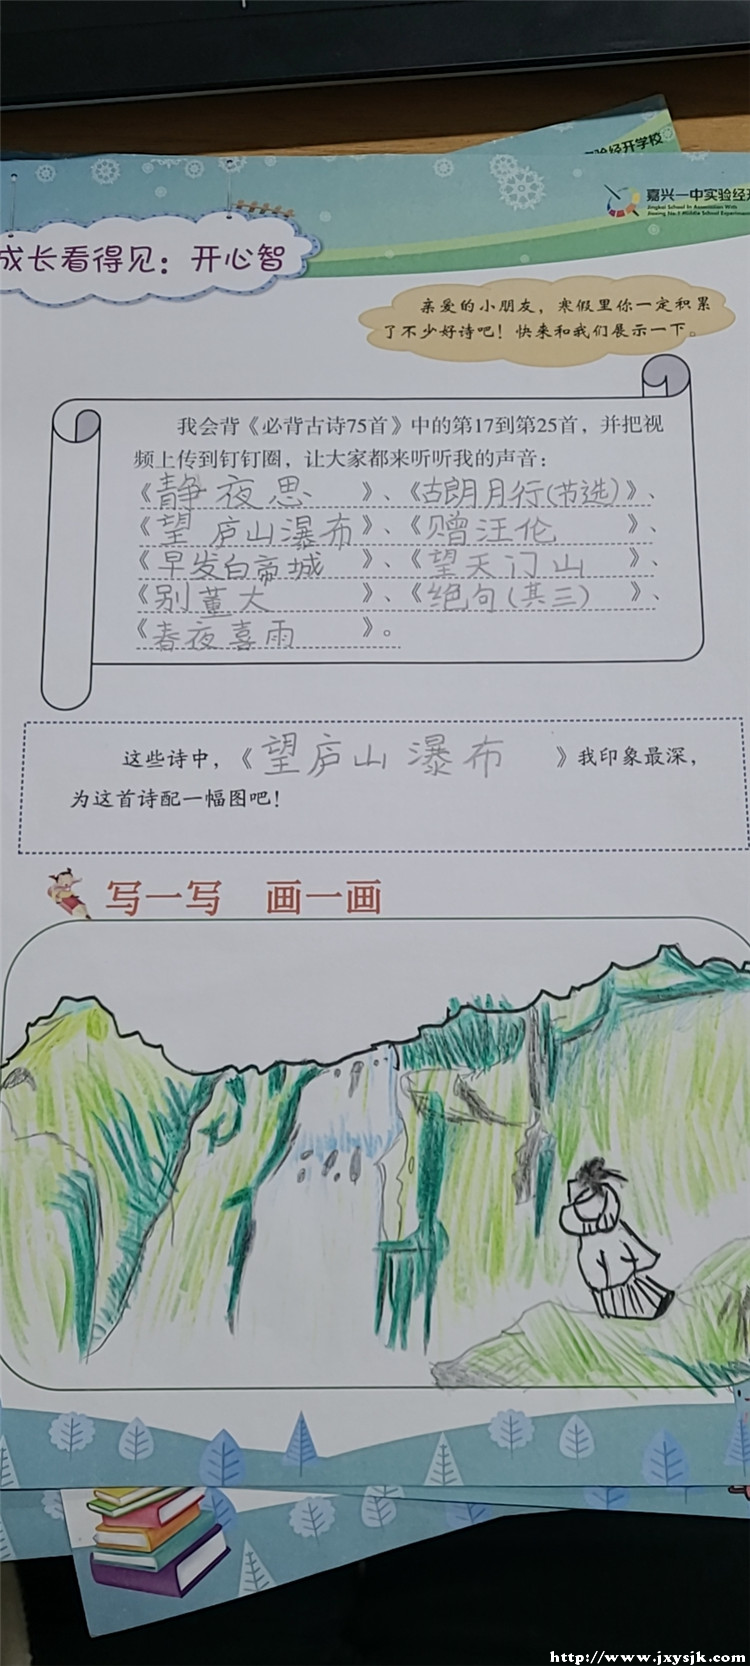 验经开学校
嘉兴一中实验经开
Jiaxing No.1 Middle School Experimental
成长看得见：开心智
亲爱的小朋友，寒假里你一定积累
了不少好诗吧！快来和我们展示一下。
我会背《必背古诗75首》中的第17到第25首，并把视
频上传到钉钉圈，让大家都来听听我的声音：
《静夜思》、《古朗月行(节选)》、
《望庐山瀑布》、《赠汪伦》、
《早发白帝城》、《望天门山》、
《别董大》、《绝句(其三)》、
《春夜喜雨》。
这些诗中，《望庐山瀑布》我印象最深，
为这首诗配一幅图吧！
写一写 画一画
http://www.jxysjk.com